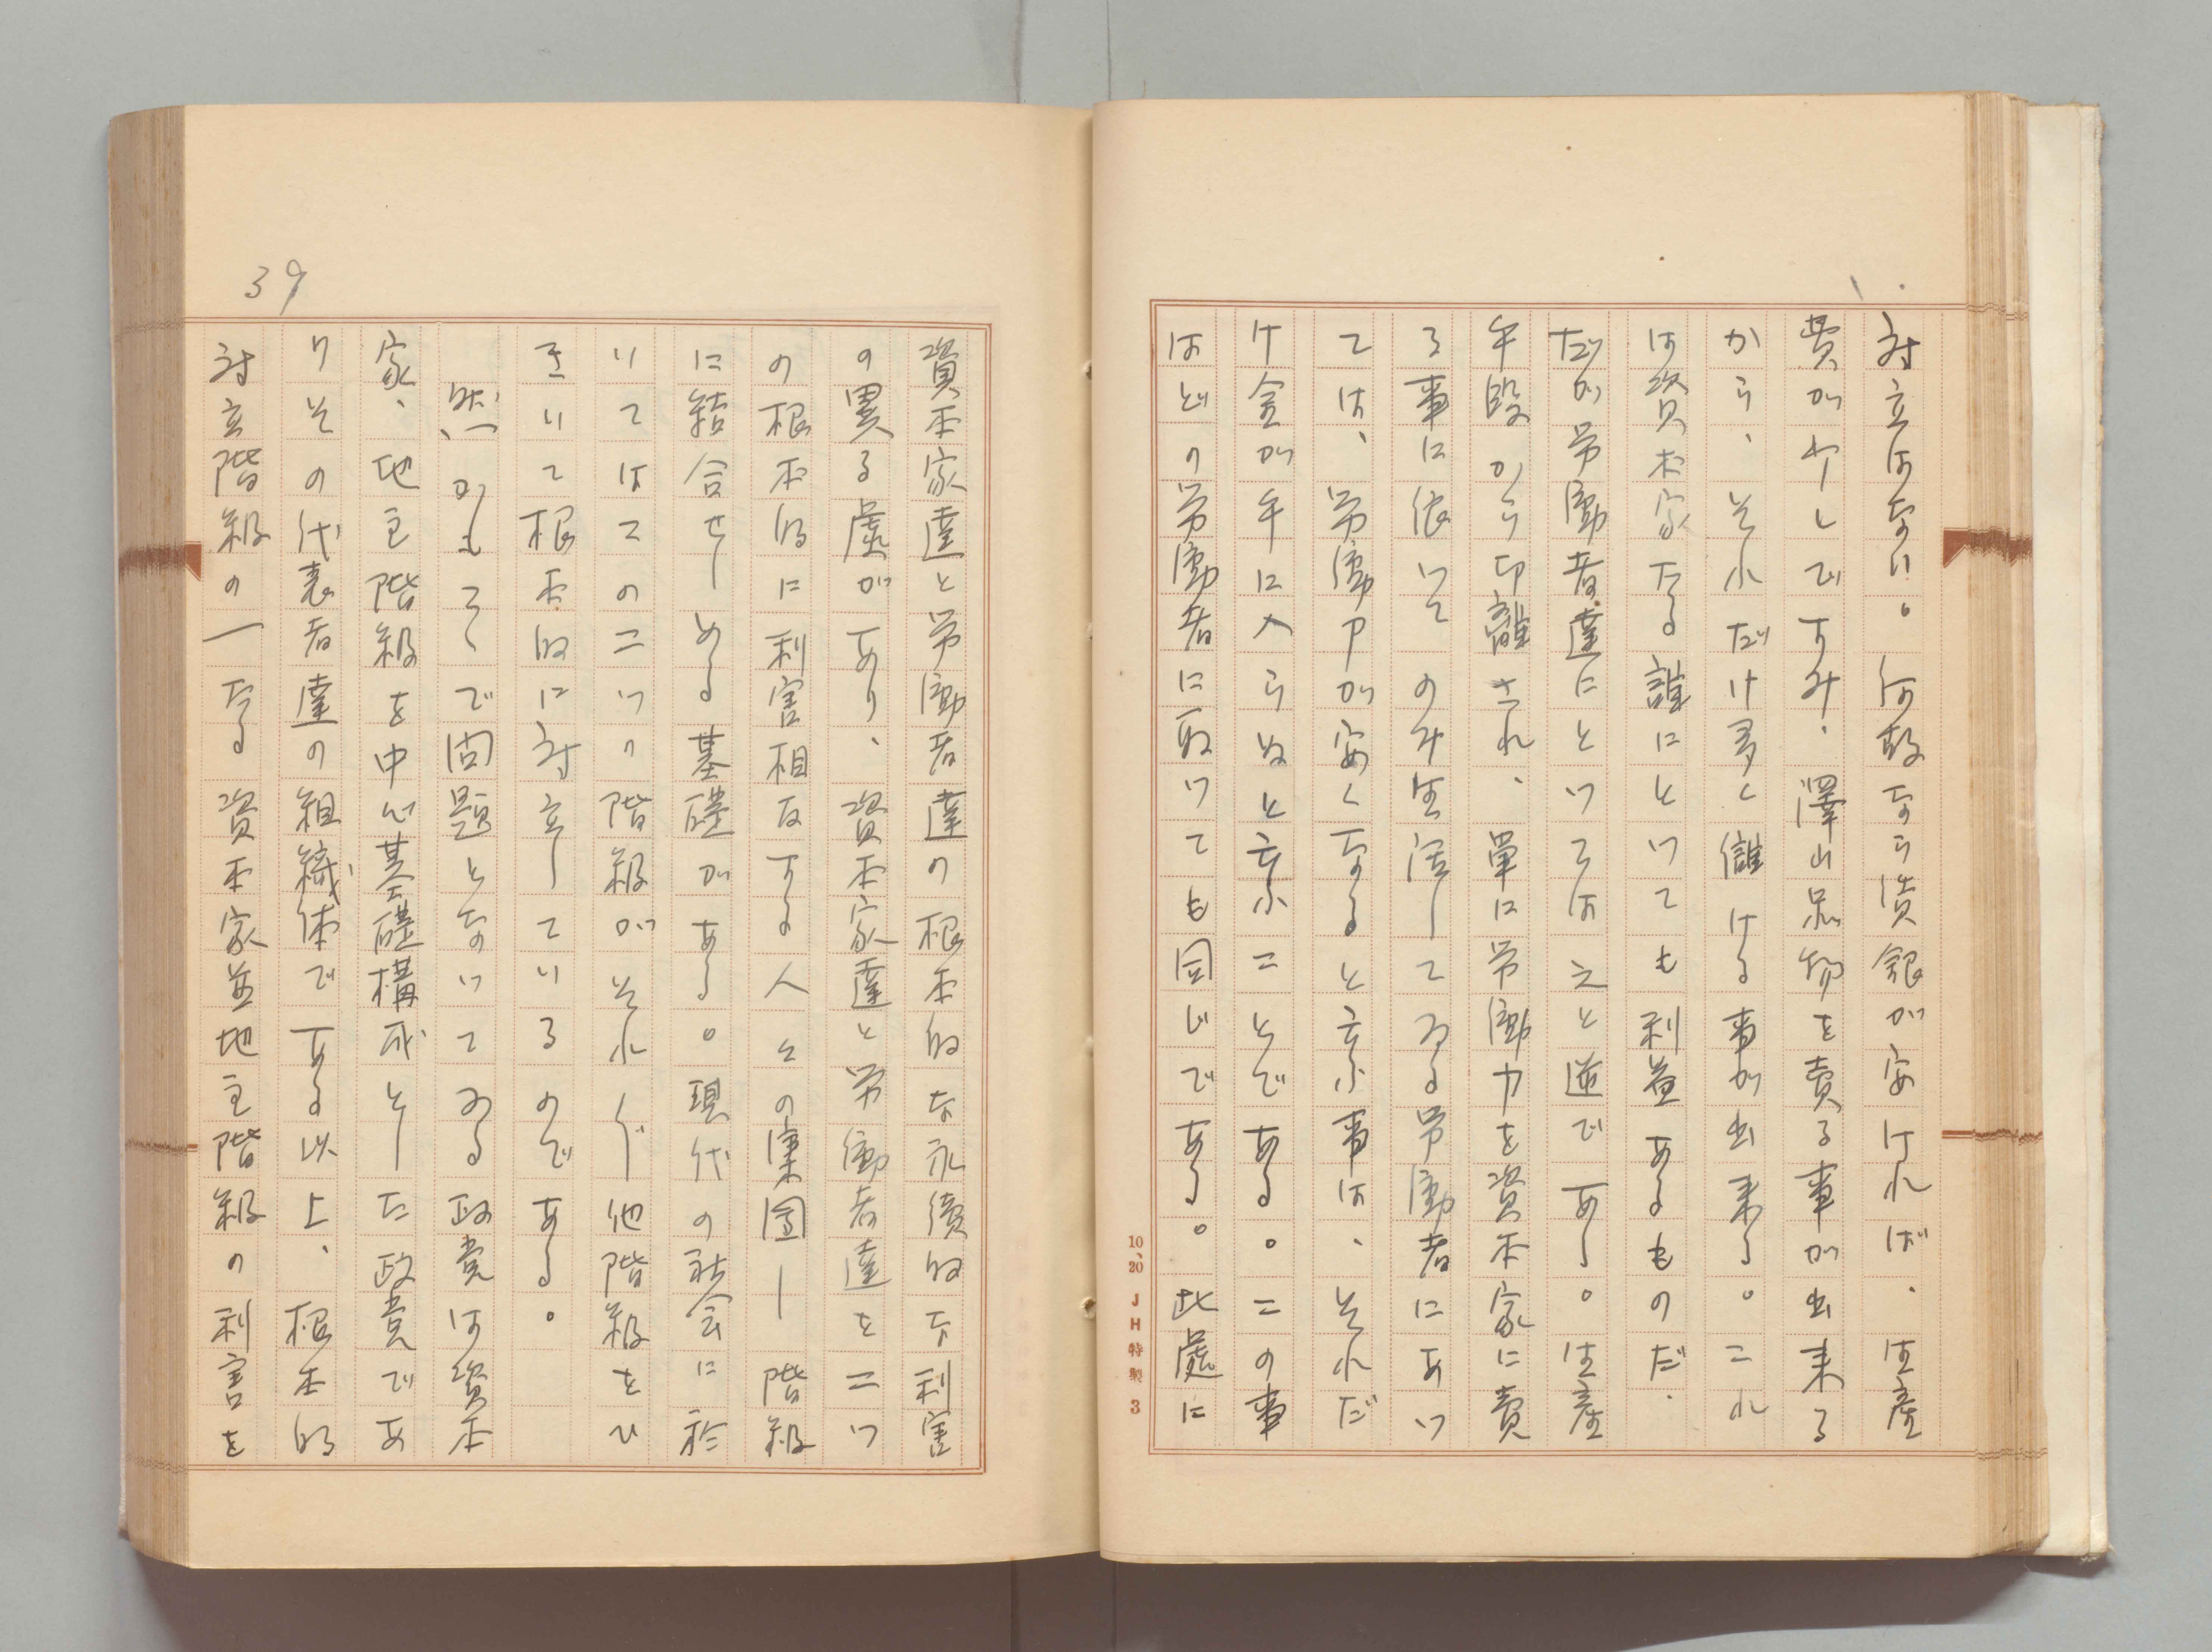 対立はない。何故なら賃銀が安ければ、生産
費がやしですみ、澤山品物を売る事が出来る
から、それだけ多く儲ける事が出来る。これ
は資本家たる誰にとつても利益あるものだ。
だが労働者達にとつては之と逆である。生産
手段から切離され、単に労働力を資本家に売
る事に依つてのみ生活してゐる労働者にあつ
ては、労働力が安くなると云ふ事は、それだ
け金が手に入らぬと云ふことである。この事
はどの労働者に取つても同じである。此處に
10.20 JH特製 3
39
資本家達と労働者達の根本的な永續的な利害
の異る處があり、資本家達と労働者達を二つ
の根本的に利害相反する人々の集團—階級
に結合せしめる基礎がある。現代の社会に於
いてはこの二つの階級がそれぐ〳〵他階級をひ
きいて根本的に対立しているのである。
然かもこゝで問題となつてゐる政党は資本
家、地主階級を中心基礎構成とした政党であ
りその代表者達の組織体である以上、根本的
対立階級の一たる資本家並地主階級の利害を